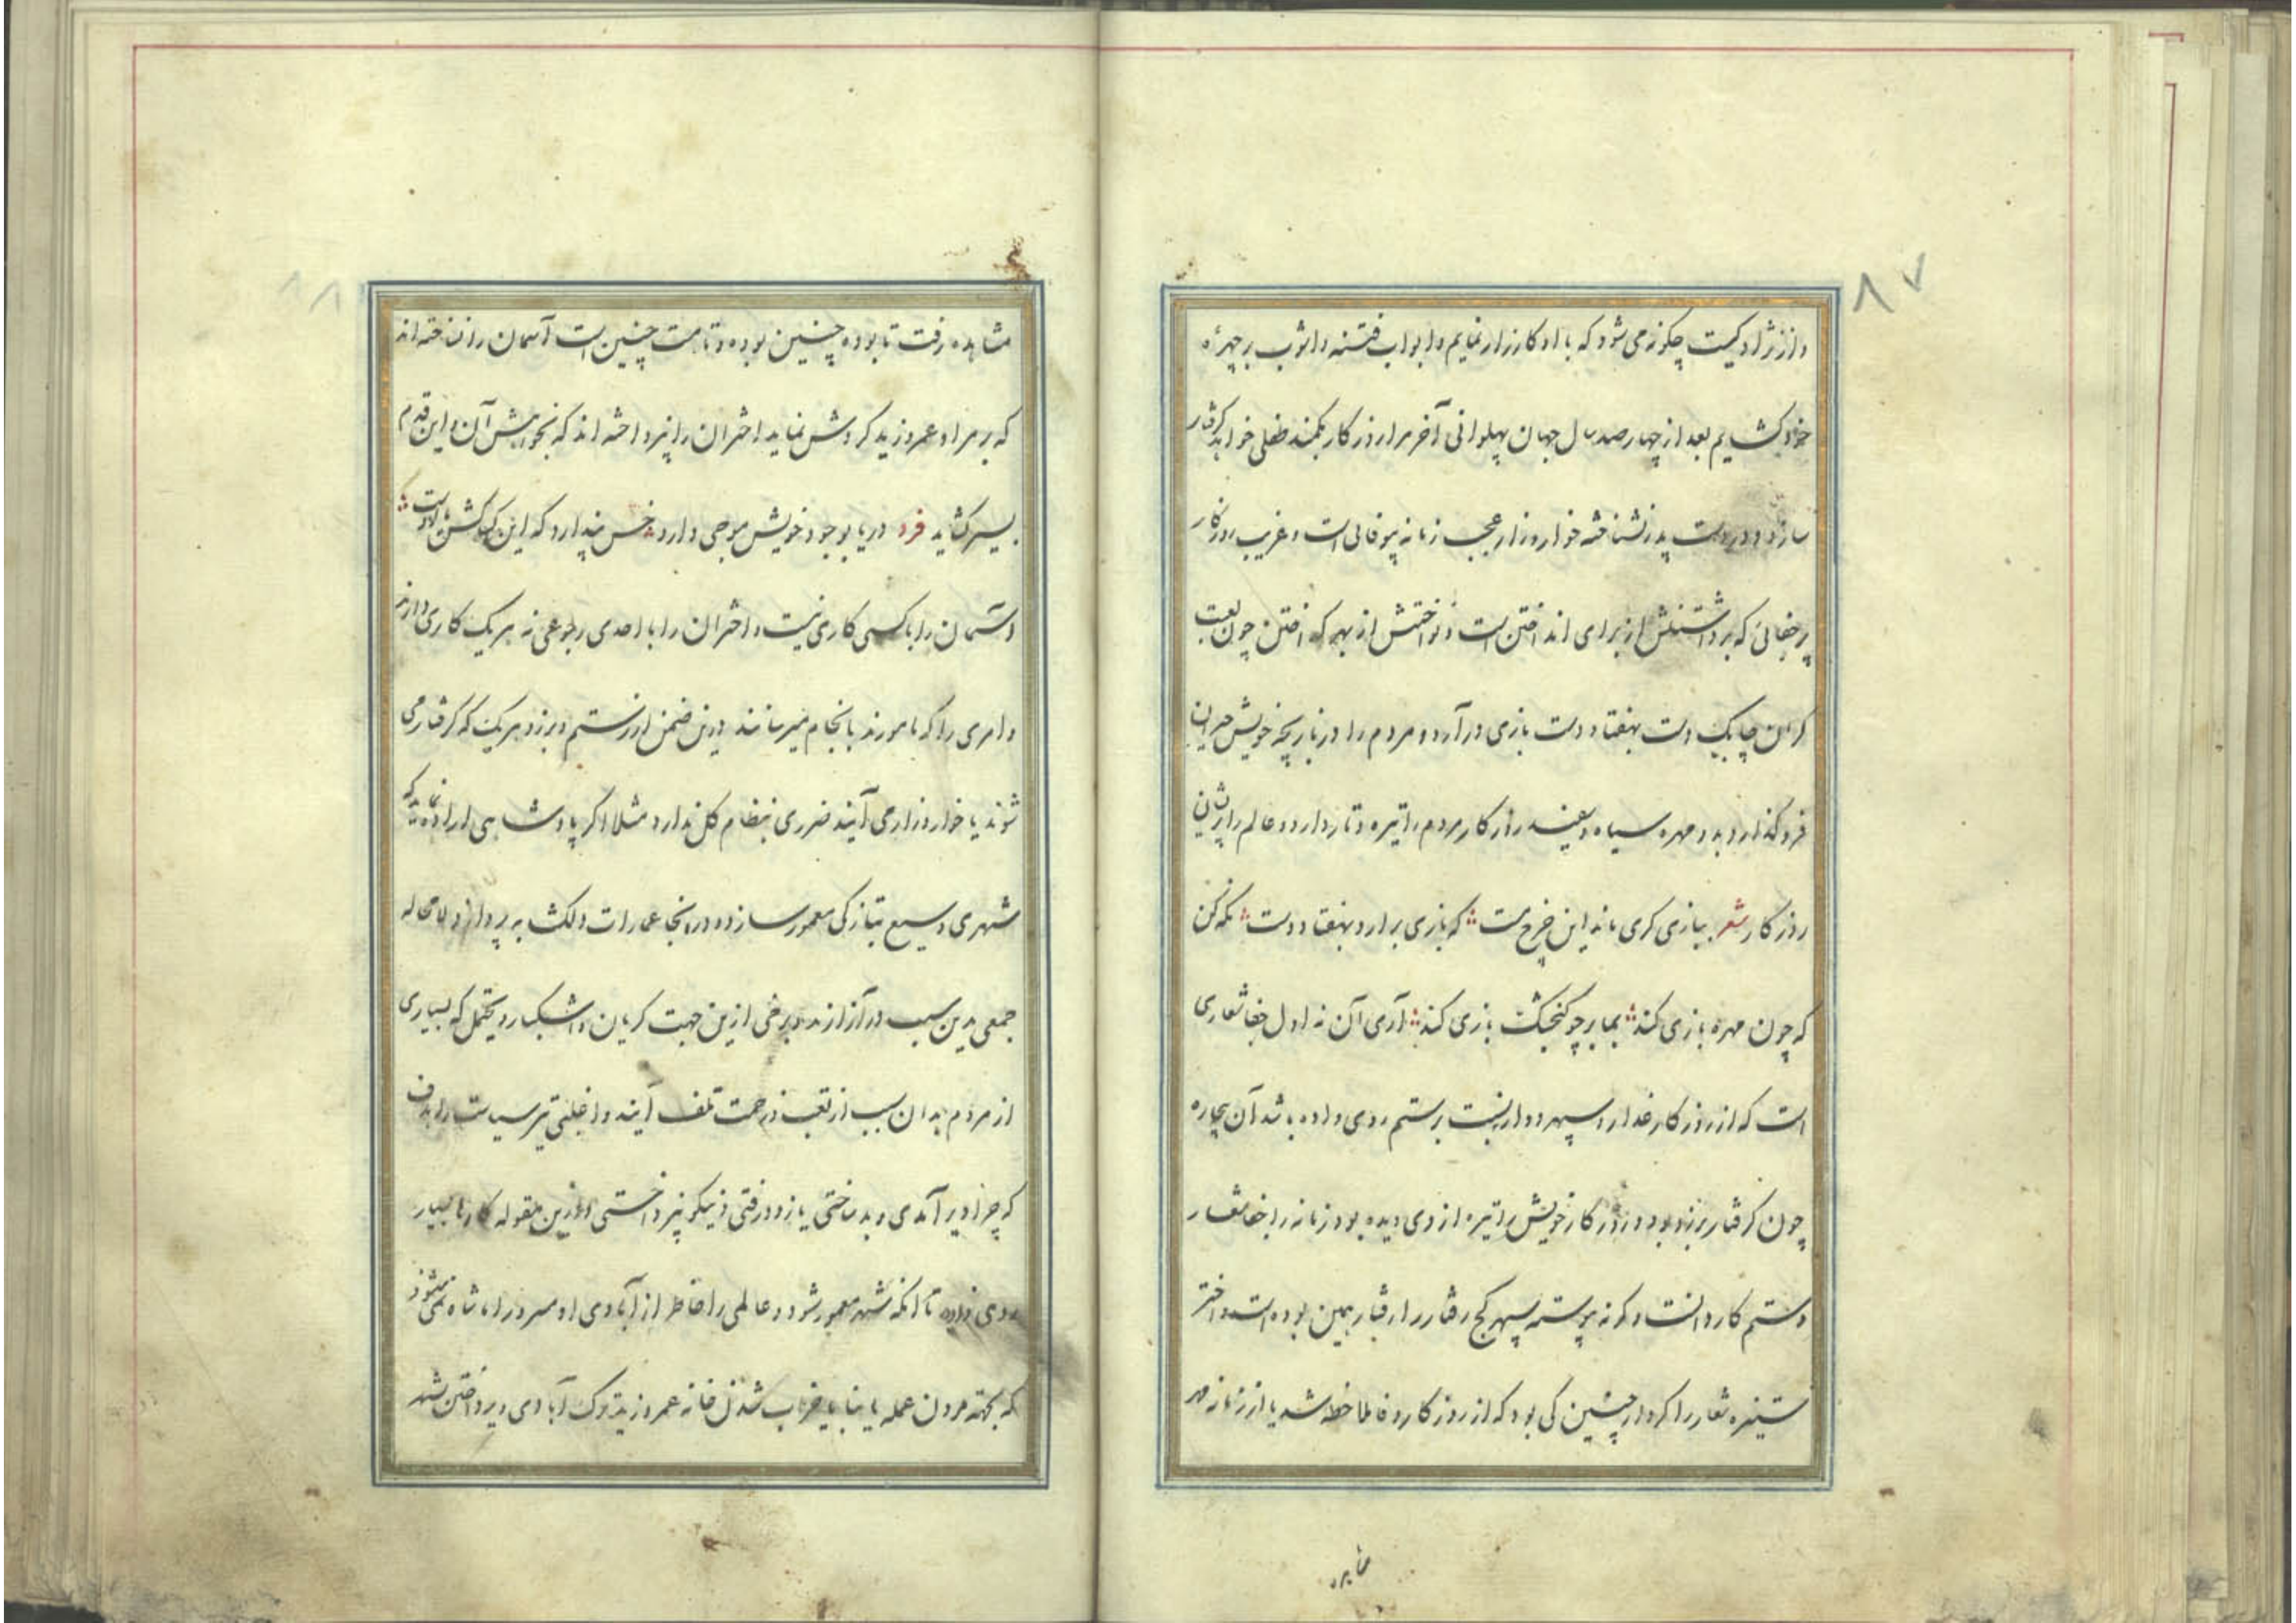 ۸۷
و از نژاد کیست چکونه می شود که با او کارزار نمایم و ابواب فتنه و اشوب بر چهرهٔ
خود کشایم بعد از چهار صد سال جهان پهلوانی آخر مرا روزکار بکمند طفلی خواهد کرفتار
سازد و در دست پدر نشناخته خوار و زار عجب زمانه پیوفائی است و غریب روزکار
پر جفائی که برداشتنش از برای انداختن است و نواختنش از بهر که اختن چون لعبت
کران چابک دست بهفتاد دست بازی در آرد و مردم را در بازیچه خویش حیران
فرو کذارد بدو مهره سیاه و سفید روز کار مردم را تیره و تار دارد و عالم را پریشان
روزکار شعر ببازی کری ماند این چرخ مست که بازی برارد بهفتاد دست نکه کن
که چون مهره بازی کند بما بر چو کنجشک بازی کند آری آن نه اول جفا شعاری
است که از روزکار غدار و سپهر دوار نسبت برستم روی داده باشد آن بیچاره
چون کرفتار برزو بود و روز کار خویش را تیره از وی دیده بود زمانه را جفا شعار
و ستم کار دانست و کرنه پیوسته سپهر کج رفتار را رفتار همین بوده است و اختر
ستیزه شعار را کردار چنین کی بود که از روزکار وفا ملاحظه شد یا از زمانه مهر
مشاهده
۸۸
مشاهده رفت تا بوده چنین بوده و تا هست چنین است آسمان را نساخته اند
که بر مراد عمرو زید کردش نماید اختران را نپرداخته اند که بخواهش آن و این قدم
بسیر کشاید فرد دریا بوجود خویش موجی دارد خس پندارد که این کشاکش با اوست
و آسمان را با کسی کاری نیست و اختران را با احدی رجوعی نه هر یک کاری دارند
و امری را که مامورند بانجام میرسانند درین ضمن از رستم و برزو هر یک که کرفتار می
شوند یا خوار و زار می آیند ضرری بنظام کل ندارد مثلا اکر پادشاهی اراده نماید که
شهری وسیع بتازکی معمور سازد و در انجا عمارات دلکشا به پردازد لا محاله
جمعی بدین سبب در آزارند و برخی ازین جهت کریان و اشکبار و یحتمل که بسیاری
از مردم بدان سبب از تعب و زحمت تلف آیند و اجلنی تیر سیاست را هدف
که چرا دیر آمدی و بد ساختی یا زود رفتی و نیکو نپرداختی و ازین مقوله کارها بسیار
روی داده تا انکه شهر معمور شود و عالمی را خاطر از آبادی او مسرور اما شاه نمی شود
که بجهته مردن عمله یا بنا یا خراب شدن خانه عمرو زید ترک آبادی و پرداختن شهر